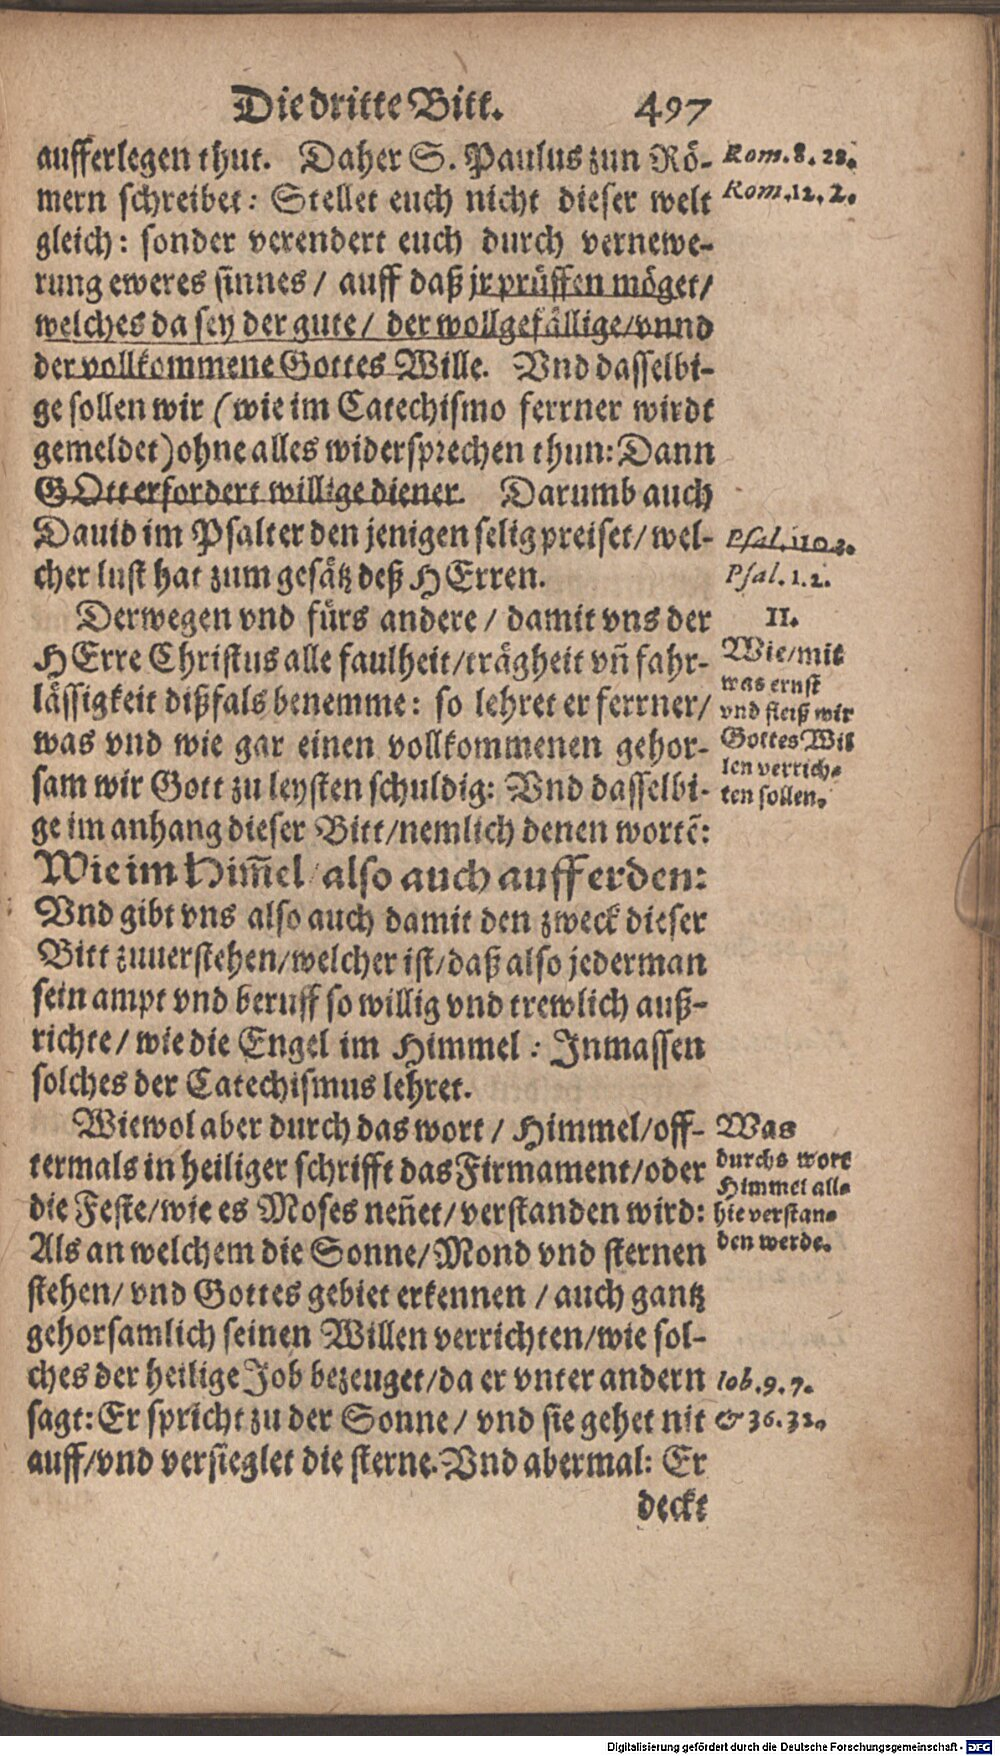 Die dritte Bitt. 497
aufferlegen thut. Daher S. Paulus zun Rö-
mern schreibet: Stellet euch nicht dieser welt
gleich: sonder verendert euch durch vernewe-
rung eweres sinnes / auff daß jr prüffen möget/
welches da sey der gute / der wollgefällige/vnnd
der vollkommene Gottes Wille. Vnd dasselbi-
ge sollen wir (wie im Catechismo ferrner wirdt
gemeldet) ohne alles widersprechen thun: Dann
GOtt erfordert willige diener. Darumb auch
Dauid im Psalter den jenigen selig preiset/ wel-
cher lust hat zum gesätz deß HErren.
Derwegen vnd fürs andere / damit vns der
HErre Christus alle faulheit/trägheit vñ fahr-
lässigkeit dißfals benemme: so lehret er ferrner/
was vnd wie gar einen vollkommenen gehor-
sam wir Gott zu leysten schuldig: Vnd dasselbi-
ge im anhang dieser Bitt/nemlich denen wortẽ:
Wie im Him̃el / also auch auff erden:
Vnd gibt vns also auch damit den zweck dieser
Bitt zuuerstehen/welcher ist/daß also jederman
sein ampt vnd beruff so willig vnd trewlich auß-
richte / wie die Engel im Himmel : Inmassen
solches der Catechismus lehret.
Wiewol aber durch das wort / Himmel/off-
termals in heiliger schrifft das Firmament/oder
die Feste/wie es Moses neñet/verstanden wird:
Als an welchem die Sonne/Mond vnd sternen
stehen/ vnd Gottes gebiet erkennen / auch gantz
gehorsamlich seinen Willen verrichten/wie sol-
ches der heilige Job bezeuget/da er vnter andern
sagt: Er spricht zu der Sonne / vnd sie gehet nit
auff/vnd versieglet die sterne. Vnd abermal: Er
deckt
Rom. 8. 28.
Rom. 12. 2.
Psal. 110. 3.
Psal. 1. 2.
II.
Wie/mit
was ernst
vnd fleiß wir
Gottes Wil
len verrich-
ten sollen.
Was
durchs wort
Himmel all-
hie verstan-
den werde.
Iob. 9. 7.
& 36. 32.
Digitalisierung gefördert durch die Deutsche Forschungsgemeinschaft - DFG